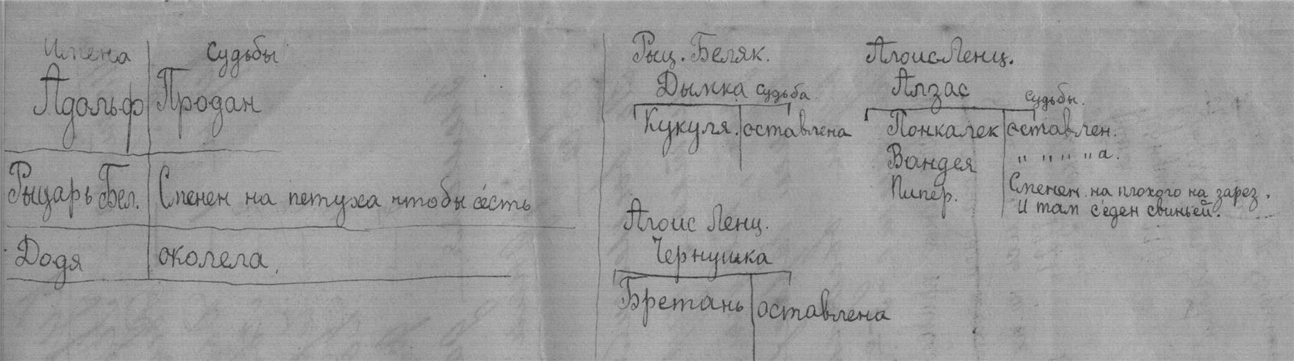 Имена судьбы
Адольф Продан
Рыцарь Бел. Сменен на петуха чтобы сесть
Додя околела.
Рыц. Беляк.
Дымка судьба
Кукуля. оставлена
Алоис Ленц.
Чернушка
Бретань оставлена
Алоис Ленц.
Алзас судьбы.
Понкалек оставлен.
Вандея " " " " а.
Пипер. Сменен на плохого на зарез.
и там с'еден свиньей.